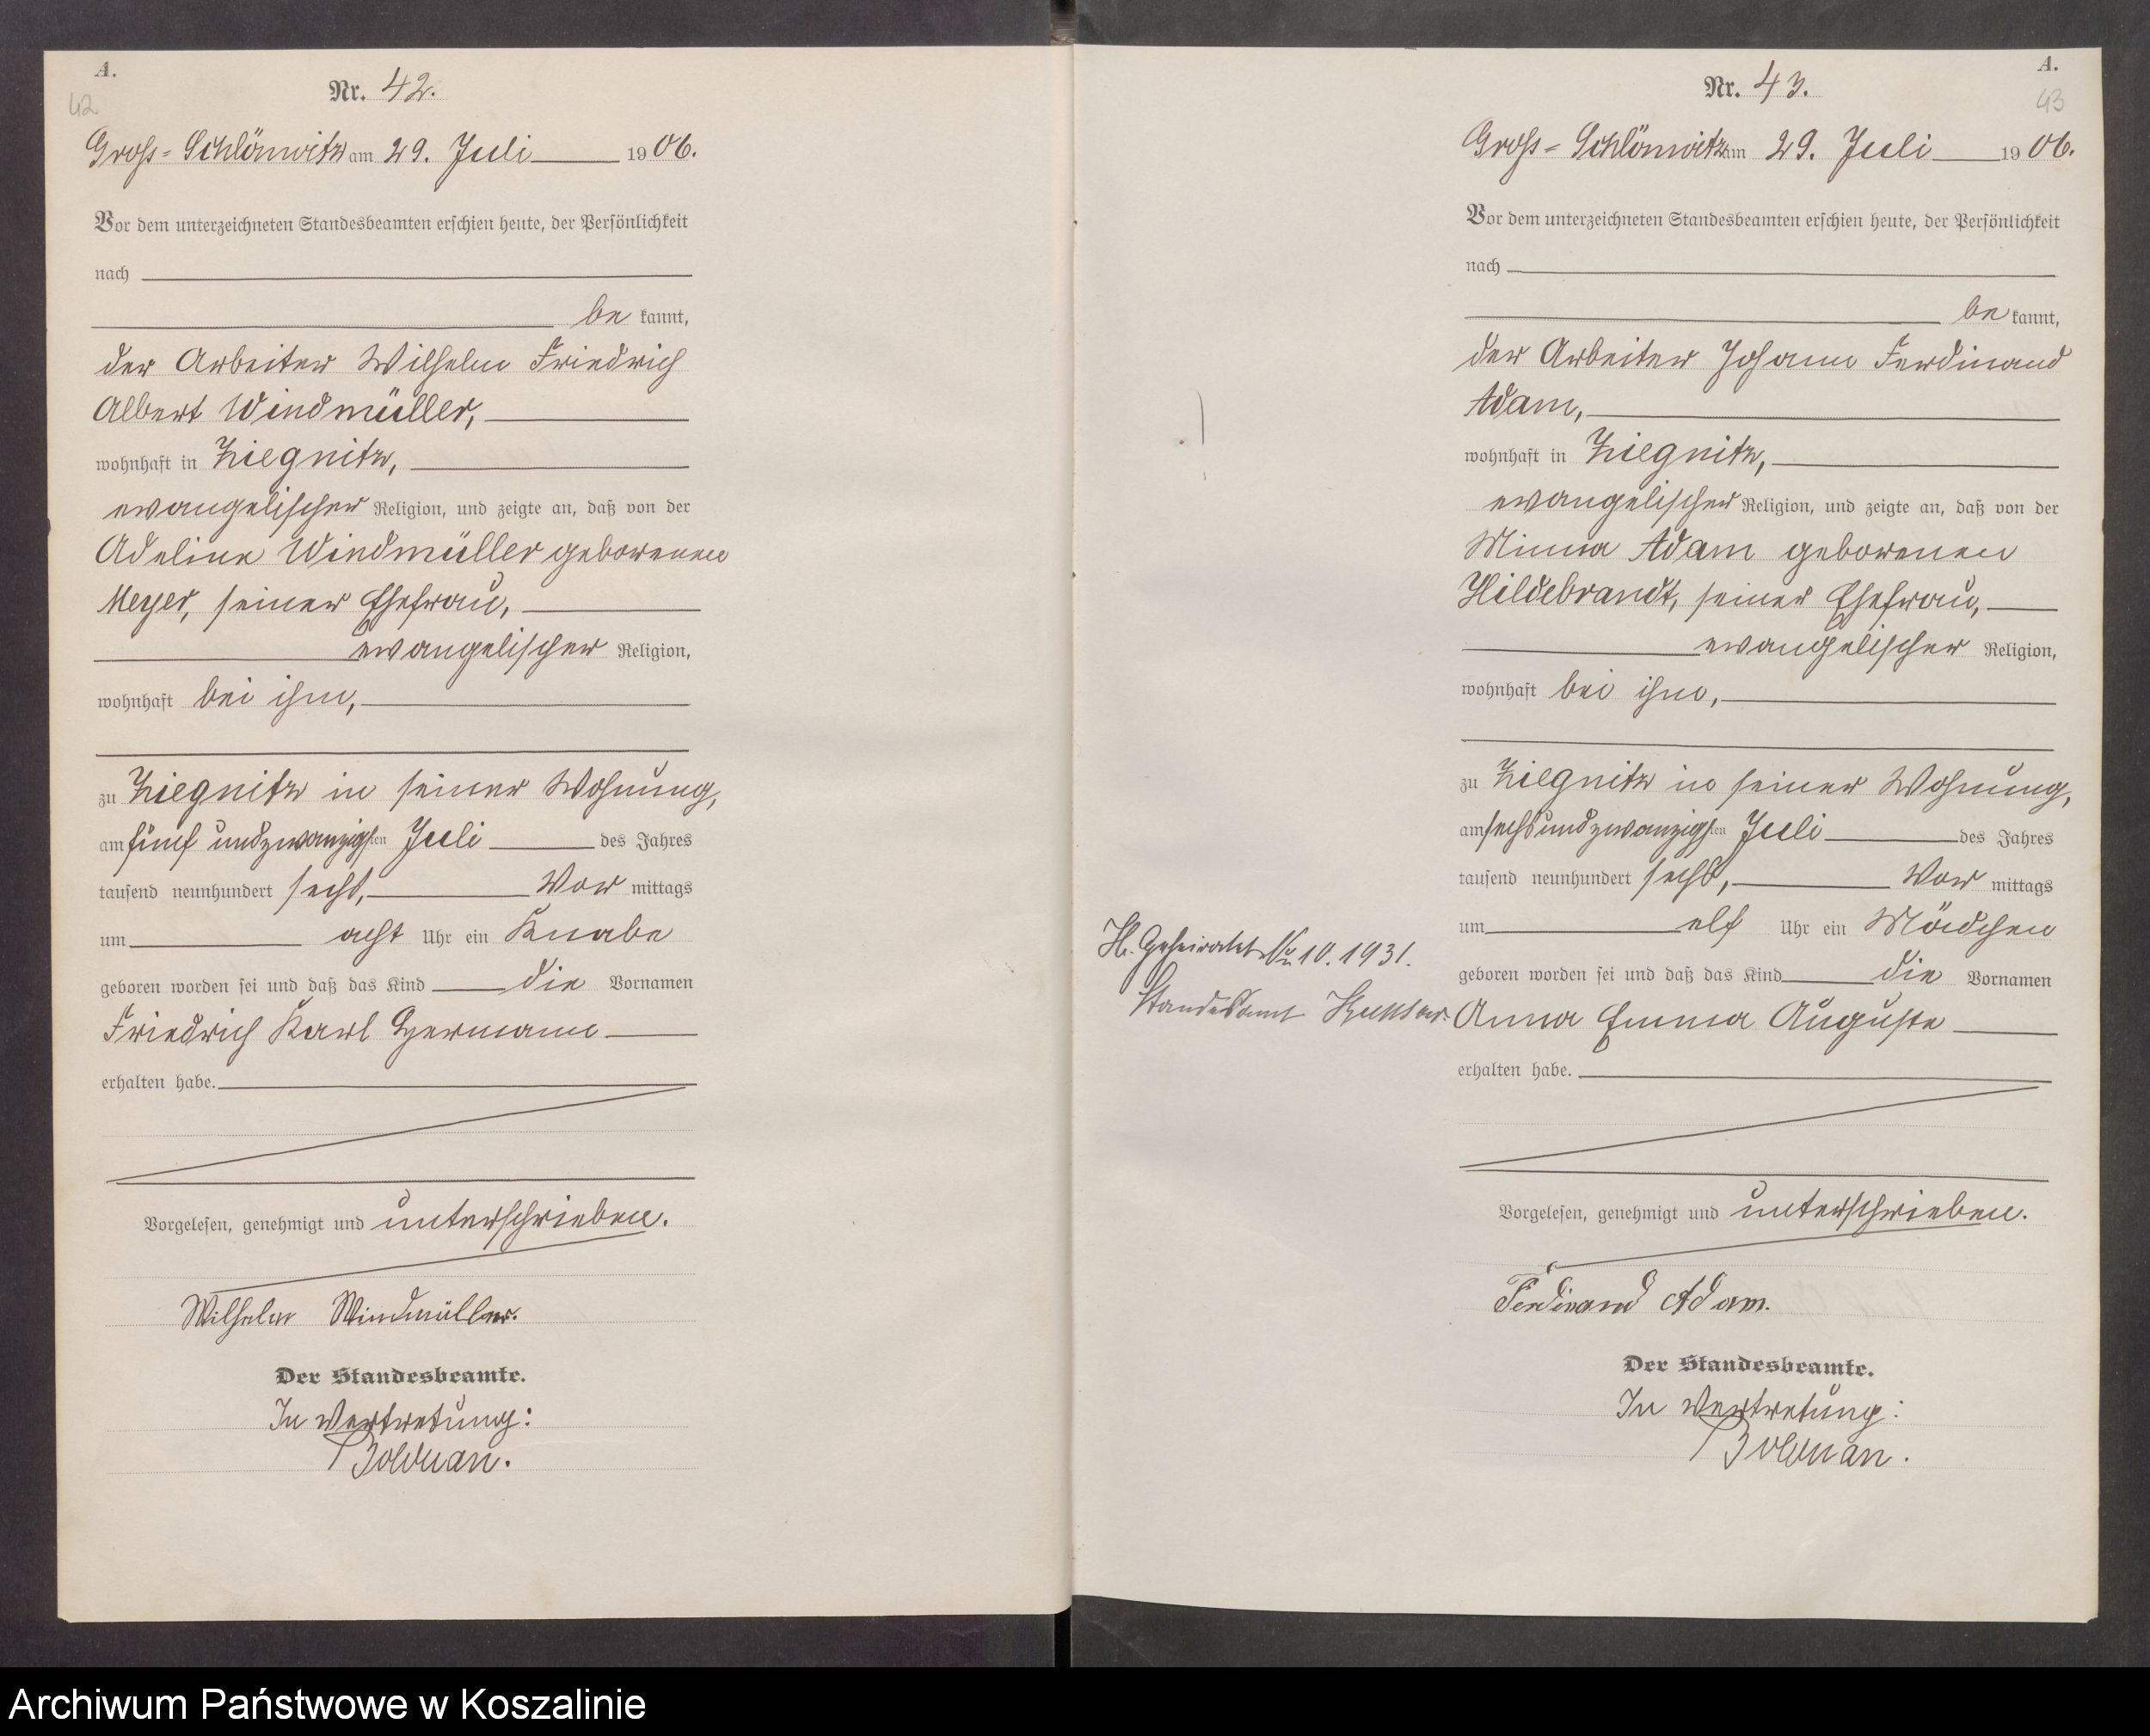 A.
42
Nr. 42.
Gross-Schlönwitz am 29. Juli 1906.
Vor dem unterzeichneten Standesbeamten erschien heute, der Persönlichkeit
nach
be kannt,
der Arbeiter Wilhelm Friedrich
Albert Windmüller,
wohnhaft in Ziegnitz,
evangelischer Religion, und zeigte an, daß von der
Adeline Windmüller geborenen
Meyer, seiner Ehefrau,
evangelischer Religion,
wohnhaft bei ihm,
zu Ziegnitz in seiner Wohnung,
am fünf und zwanzigsten Juli des Jahres
tausend neunhundert sechs, Vor mittags
um acht Uhr ein Knabe
geboren worden sei und daß das Kind die Vornamen
Friedrich Karl Hermann
erhalten habe.
Vorgelesen, genehmigt und unterschrieben.
Wilhelm Windmüller.
Der Standesbeamte.
In Vertretung:
Bolduan.
A.
43
Nr. 43.
Gross-Schlönwitz am 29. Juli 1906.
Vor dem unterzeichneten Standesbeamten erschien heute, der Persönlichkeit
nach
be kannt,
der Arbeiter Johann Ferdinand
Adam,
wohnhaft in Ziegnitz,
evangelischer Religion, und zeigte an, daß von der
Minna Adam geborenen
Hildebrandt, seiner Ehefrau,
evangelischer Religion,
wohnhaft bei ihm,
zu Ziegnitz in seiner Wohnung,
am sechsundzwanzigsten Juli des Jahres
tausend neunhundert sechs, Vor mittags
um elf Uhr ein Mädchen
geboren worden sei und daß das Kind die Vornamen
Geheiratet 10. 1931.
Standesamt
Anna Emma Auguste
erhalten habe.
Vorgelesen, genehmigt und unterschrieben.
Ferdinand Adam.
Der Standesbeamte.
In Vertretung:
Bolduan.
Archiwum Państwowe w Koszalinie